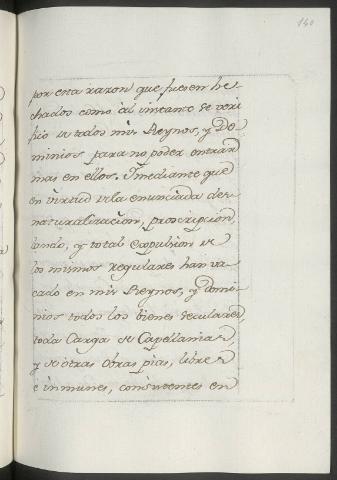 140
por esta razon que fuesen he-
chados como àl instante se veri
ficó de todos mis Reynos, y Do
minios para no poder entrar
mas en ellos. Y mediante que
en virtud de la enunciada des-
naturalizacion, proscripcion,
lando, y total Expulsion de
los mismos regulares han va
cado en mis Reynos, y Domi-
nios todos los bienes seculares,
toda Carga de Capellania,
y de otras obras pias, libre
è inmunes, consistentes en